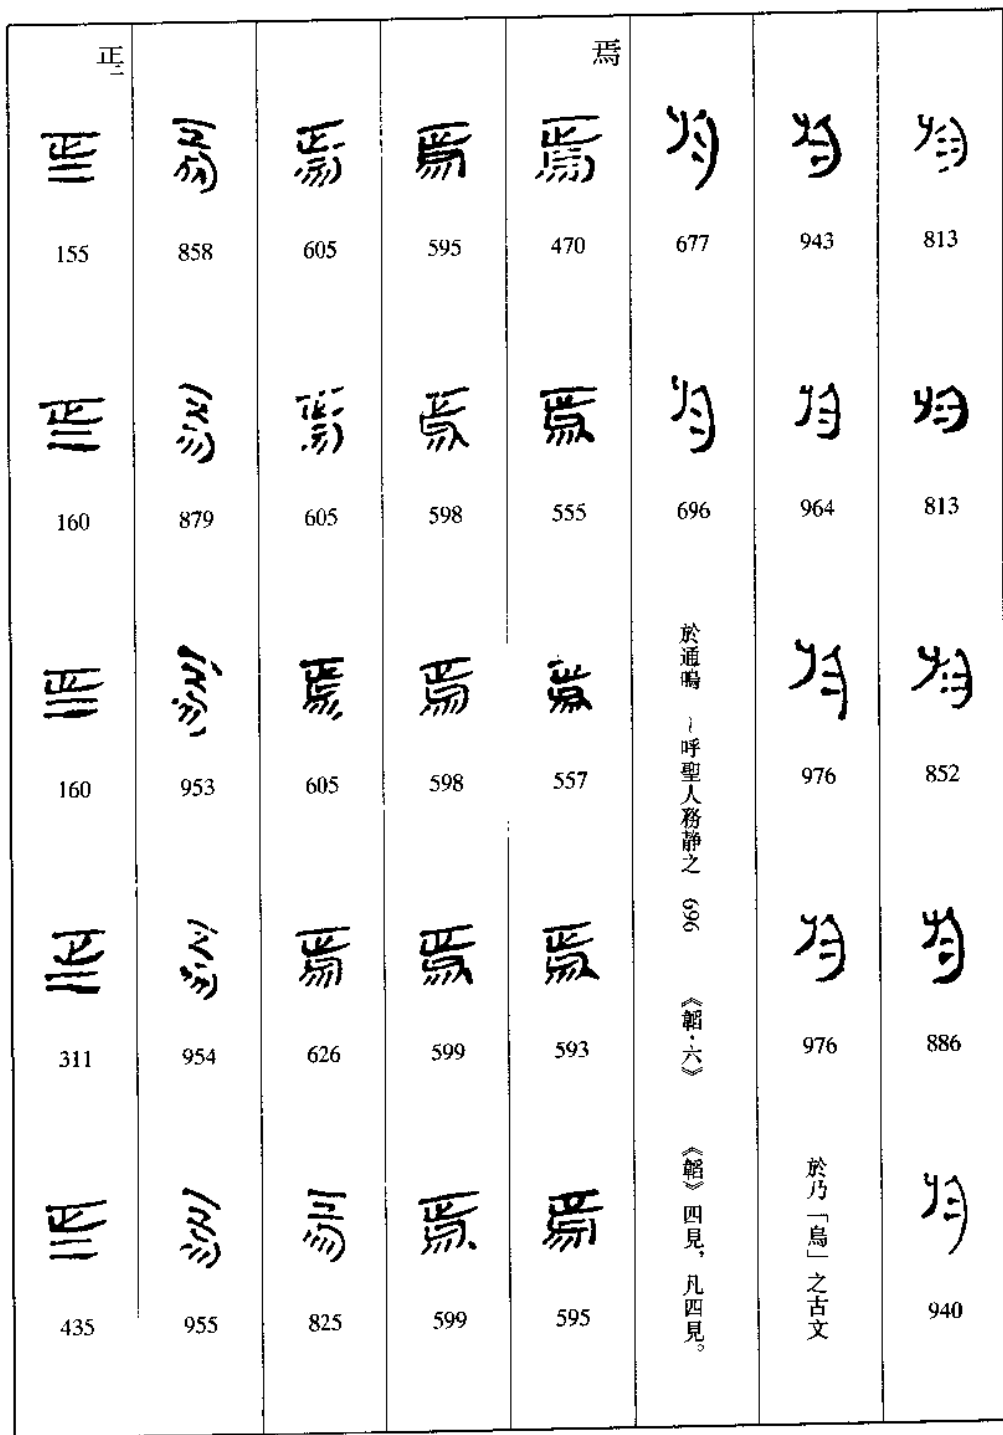 813
813
852
886
940
943
964
976
976
於乃「烏」之古文
677
696
於通嗚 ~呼聖人務静之 696 《韜·六》 《韜》四見，凡四見。
焉
470
555
557
593
595
595
598
598
599
599
605
605
605
626
825
858
879
953
954
955
正二
155
160
160
311
435